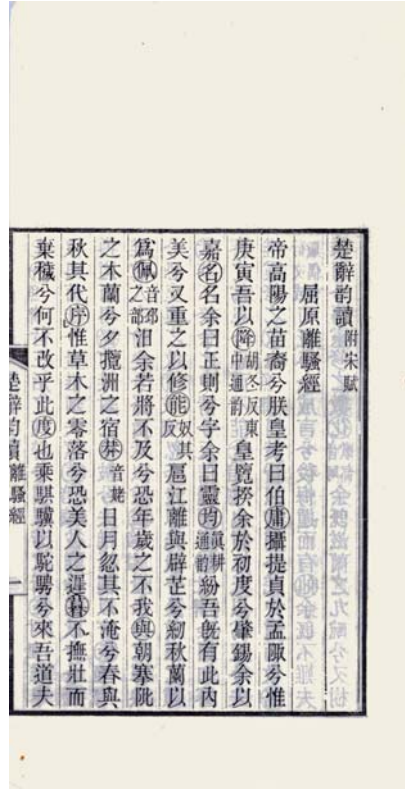 楚辭韵讀附宋賦
屈原離騷經
帝高陽之苗裔兮朕皇考曰伯庸攝提貞於孟陬兮惟
庚寅吾以降胡冬反東中通韵皇覽揆余於初度兮肇錫余以
嘉名名余曰正則兮字余曰靈均眞耕通韵紛吾旣有此內
美兮又重之以修能奴其反扈江離與辟芷兮紉秋蘭以
爲佩音邳之部汩余若將不及兮恐年歲之不我與朝搴阰
之木蘭兮夕攬洲之宿莽音姥日月忽其不淹兮春與
秋其代序惟草木之零落兮恐美人之遲暮不撫壯而
棄穢兮何不改乎此度也乘騏驥以駝騁兮來吾道夫
楚辭韵讀 離騷經 一